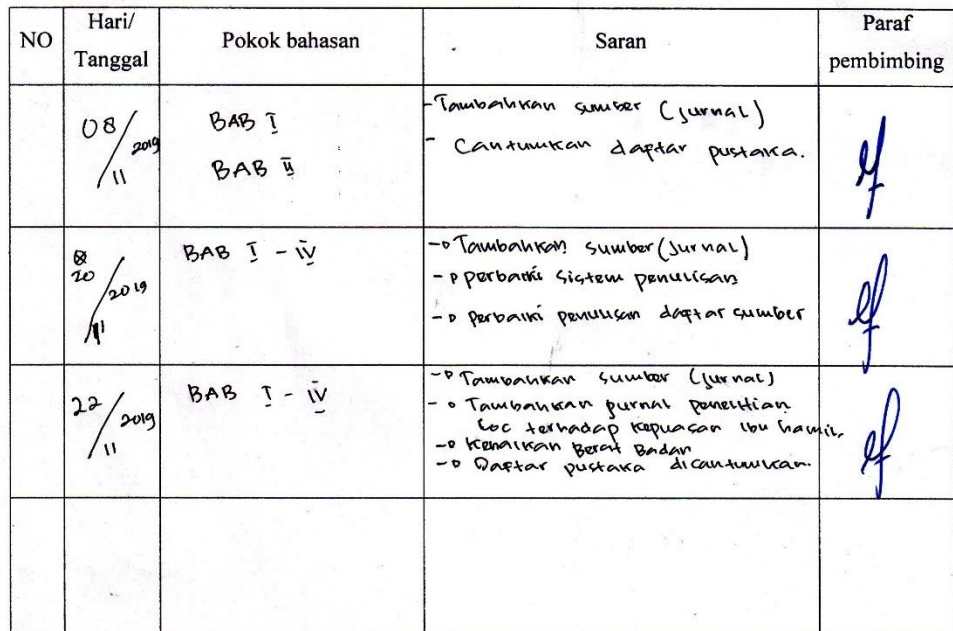 NO
Hari/
Tanggal
Pokok bahasan
Saran
Paraf
pembimbing
08/11 2019
BAB I
BAB II
- Tambahkan sumber (jurnal)
- Cantumkan daftar pustaka.
20/11 2019
BAB I - IV
- Tambahkan sumber (Jurnal)
- perbaiki sistem penulisan
- perbaiki penulisan daftar sumber
22/11 2019
BAB I - IV
- Tambahkan sumber (jurnal)
- Tambahkan jurnal penelitian
coc terhadap kepuasan ibu hamil,
- Kenaikan Berat Badan
- Daftar pustaka dicantumkan.